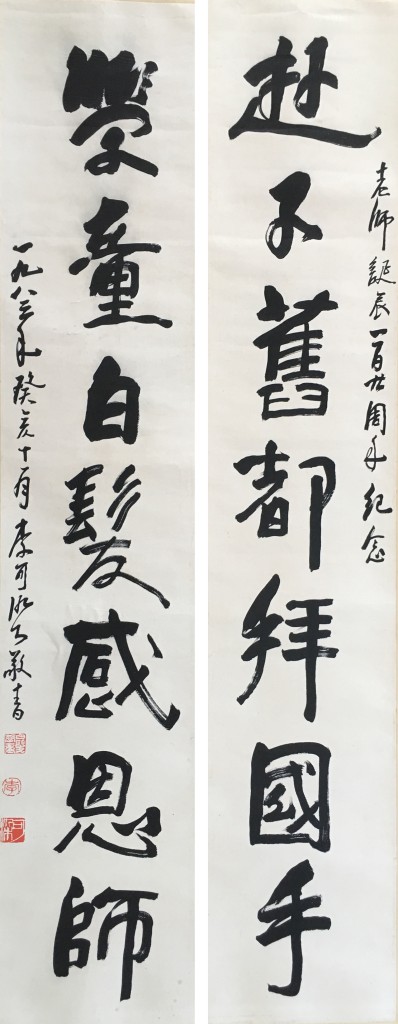 遊子舊都拜國手
老師誕辰一百廿周年紀念
學童白髮感恩師
一九八三年癸亥十月李可染敬書